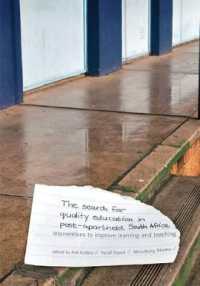 The search for
quality education in
post-apartheid South Africa
interventions to improve learning and teaching
edited by